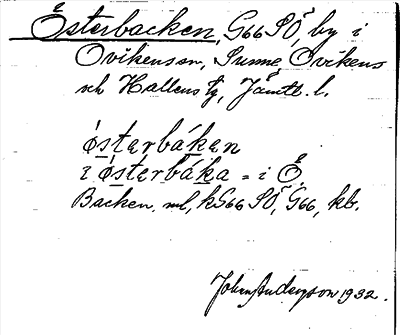 Österbacken, G66 SÖ, by i
Ovikenson, Sunne, Ovikens
och Hallens tg, Jämtl. l.
österbáken
i österbáka = i Ö.
Backen. ml, kG66 SÖ, G66, kb.
John Anderson 1932.